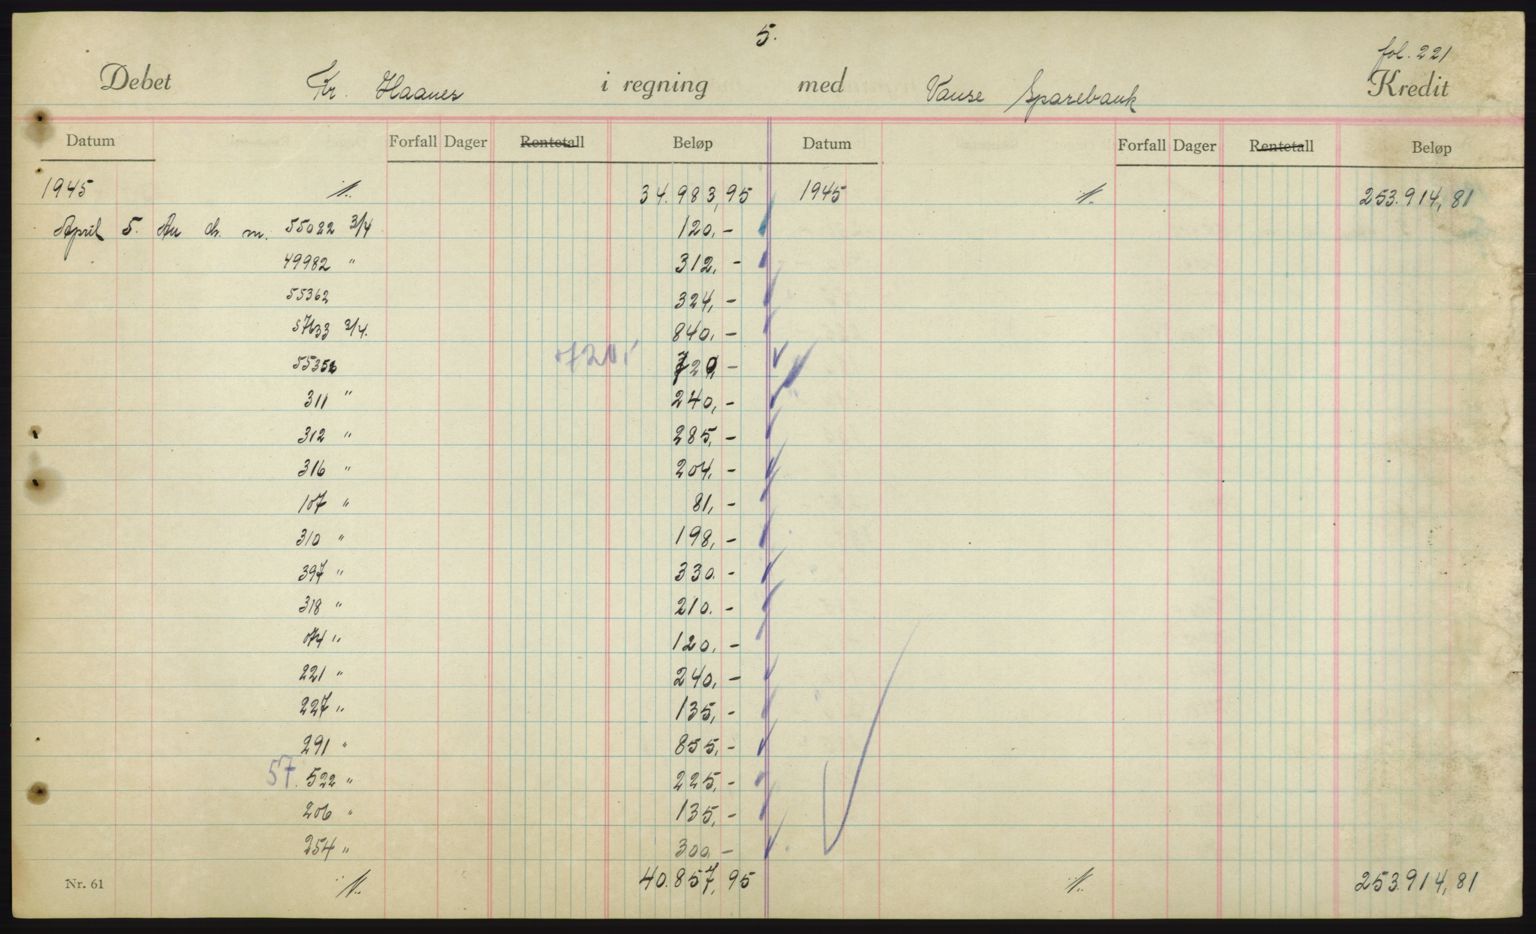 5.
fol. 221
Debet Kr. Haanes i regning med Vanse Sparebank Kredit
Datum Forfall Dager Rentetall Beløp Datum Forfall Dager Rentetall Beløp
1945 34.983,95 1945 253.914,81
April 5. An ch. m. 55022 3/4 120,-
49982 " 312,-
55362 324,-
57633 3/4. 840,-
55356 720,- 720,-
311 " 240,-
312 " 285,-
316 " 204,-
107 " 81,-
310 " 198,-
397 " 330.-
318 " 210.-
074 " 120,-
221 " 240,-
227 " 135,-
291 " 855,-
57. 522 " 225,-
206 " 135,-
254 " 300,-
Nr. 61 40.857,95 253.914,81